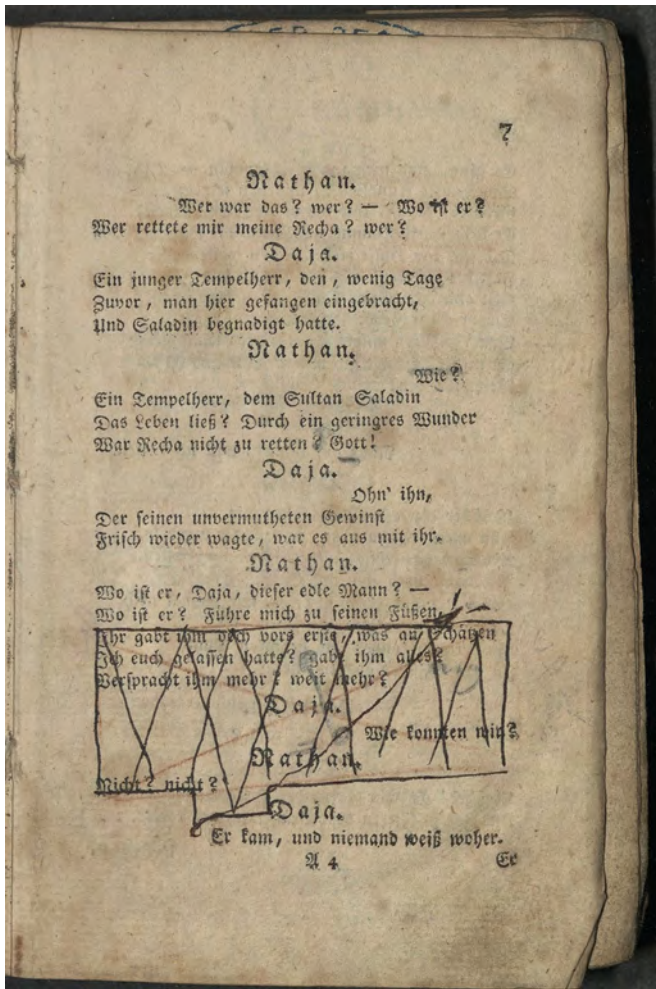 7
Nathan.
Wer war das? wer? — Wo ist er?
Wer rettete mir meine Recha? wer?
Daja.
Ein junger Tempelherr, den, wenig Tage
Zuvor, man hier gefangen eingebracht,
Und Saladin begnadigt hatte.
Nathan.
Wie?
Ein Tempelherr, dem Sultan Saladin
Das Leben ließ? Durch ein geringres Wunder
War Recha nicht zu retten? Gott!
Daja.
Ohn' ihn,
Der seinen unvermutheten Gewinst
Frisch wieder wagte, war es aus mit ihr.
Nathan.
Wo ist er, Daja, dieser edle Mann? —
Wo ist er? Führe mich zu seinen Füßen.
Ihr gabt ihm doch vors erste, was an Schätzen
Ich euch gelassen hatte? gabt ihm alles?
Verspracht ihm mehr? weit mehr?
Daja.
Wie konnten wir?
Nathan.
Nicht? nicht?
Daja.
Er kam, und niemand weiß woher.
A 4
Er